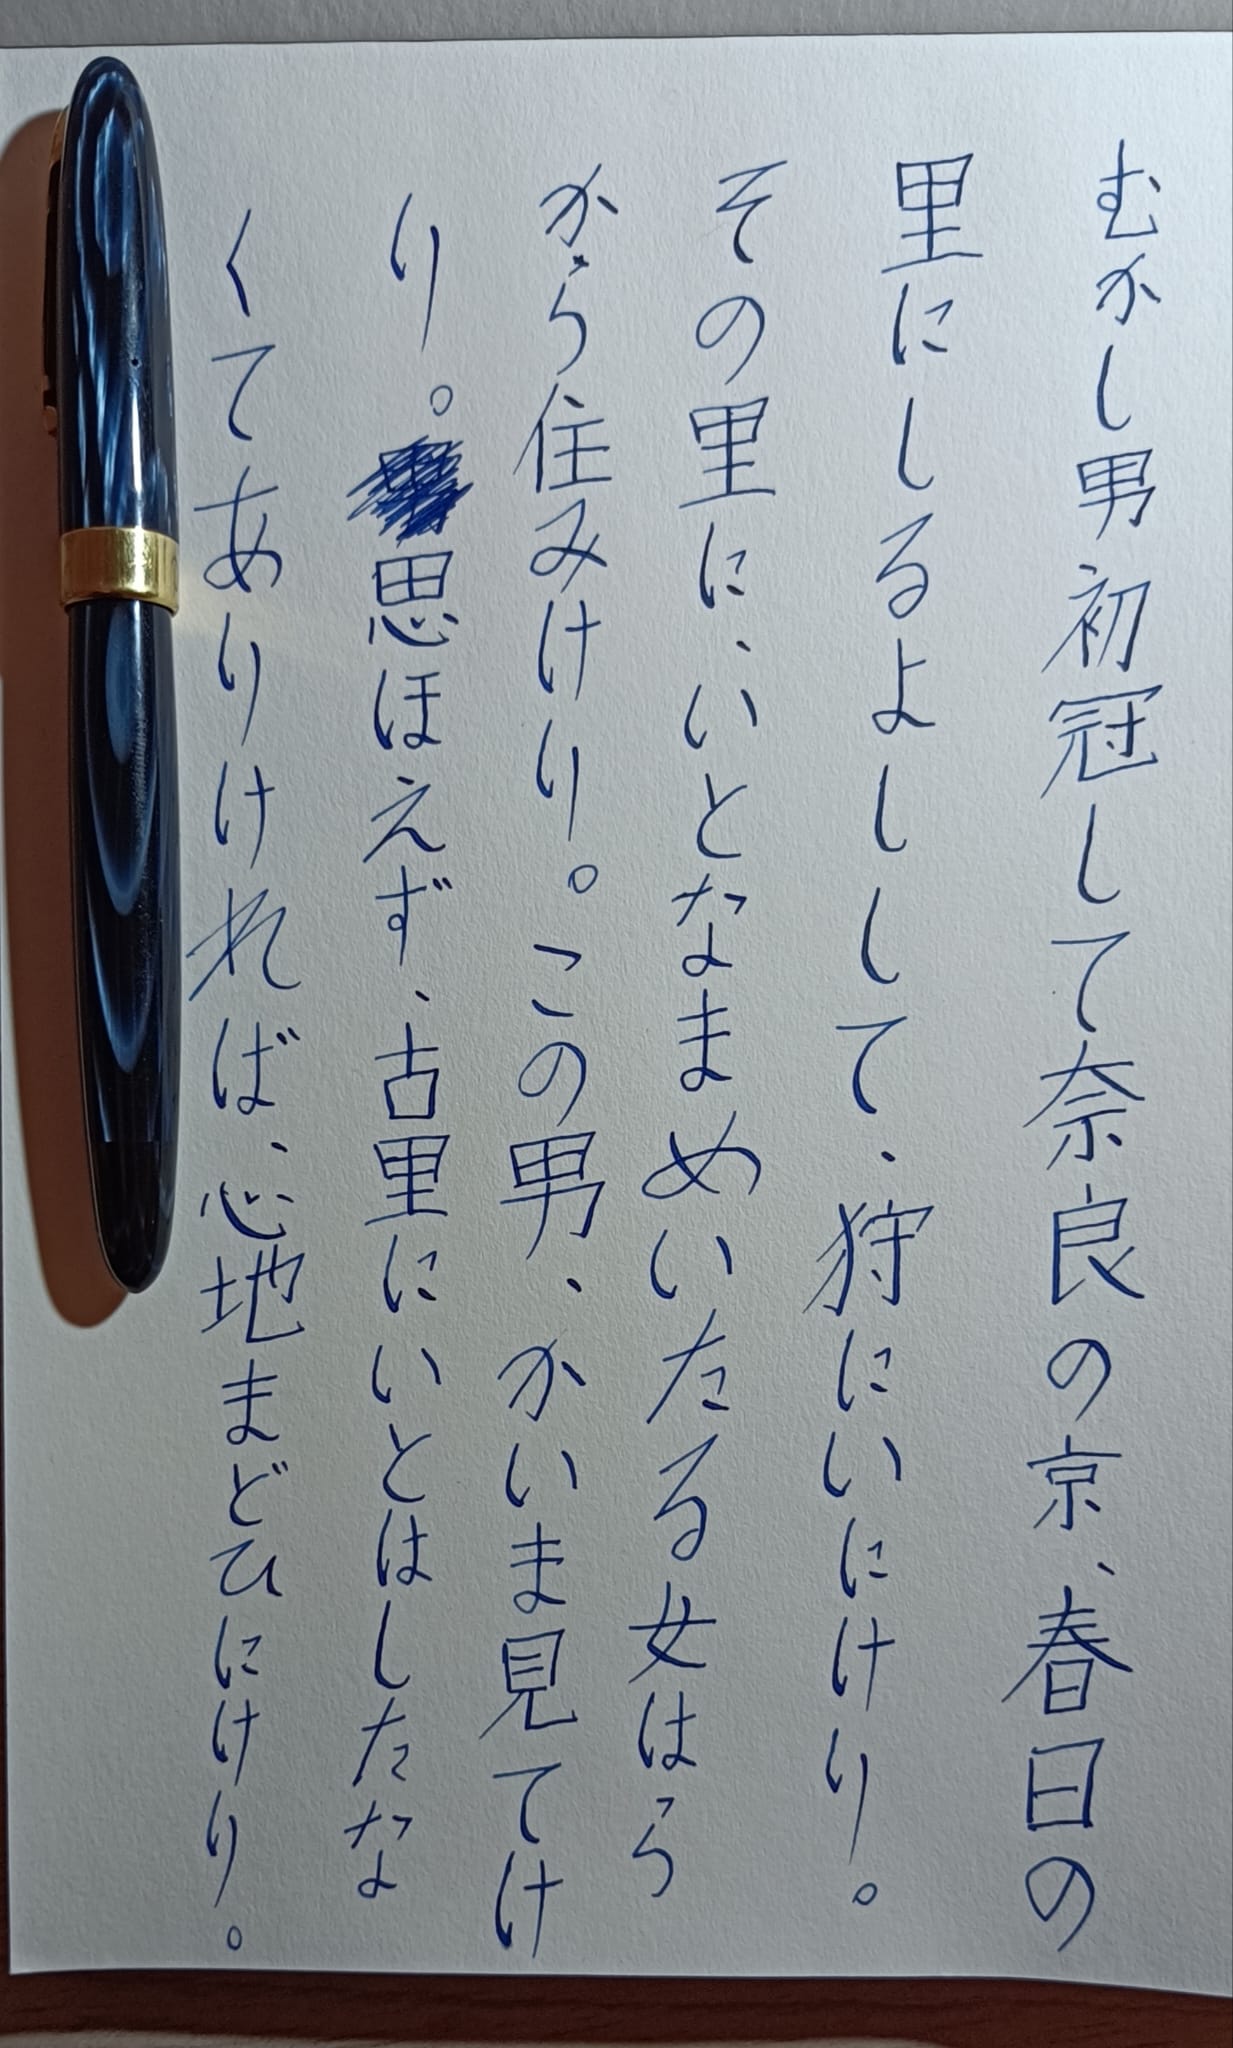 むかし男初冠して奈良の京、春日の
里にしるよしして、狩にいにけり。
その里に、いとなまめいたる女はら
から住みけり。この男、かいま見てけ
り。思ほえず、古里にいとはしたな
くてありければ、心地まどひにけり。